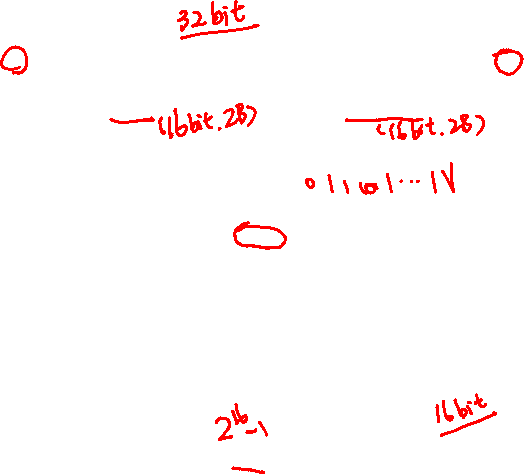 32bit
(16bit, 2B) (16bit, 2B)
2^16-1
16bit